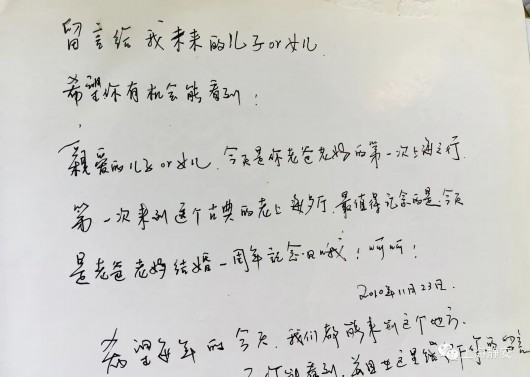 留言给我未来的儿子or女儿
希望你有机会能看到!
親爱的儿子or女儿.今天是你老爸老妈的第一次上海之行.
第一次来到这个古典的老上海乡厅.最值得记念的是.今天
是老爸老妈结婚一周年记念日哦!呵呵!
2010年11月23日.
希望每年的今天.我们都能来到这个地方.
看到.并且在这里给
上海静安